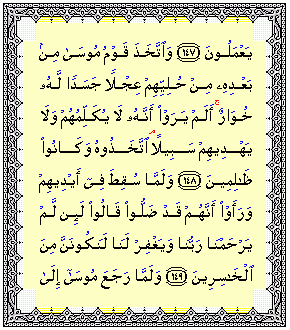 يَعۡمَلُونَ ١٤٧ وَٱتَّخَذَ قَوۡمُ مُوسَىٰ مِنۢ
بَعۡدِهِۦ مِنۡ حُلِيِّهِمۡ عِجۡلٗا جَسَدٗا لَّهُۥ
خُوَارٌۚ أَلَمۡ يَرَوۡاْ أَنَّهُۥ لَا يُكَلِّمُهُمۡ وَلَا
يَهۡدِيهِمۡ سَبِيلًاۘ ٱتَّخَذُوهُ وَكَانُواْ
ظَٰلِمِينَ ١٤٨ وَلَمَّا سُقِطَ فِيٓ أَيۡدِيهِمۡ
وَرَأَوۡاْ أَنَّهُمۡ قَدۡ ضَلُّواْ قَالُواْ لَئِن لَّمۡ
يَرۡحَمۡنَا رَبُّنَا وَيَغۡفِرۡ لَنَا لَنَكُونَنَّ مِنَ
ٱلۡخَٰسِرِينَ ١٤٩ وَلَمَّا رَجَعَ مُوسَىٰٓ إِلَىٰ